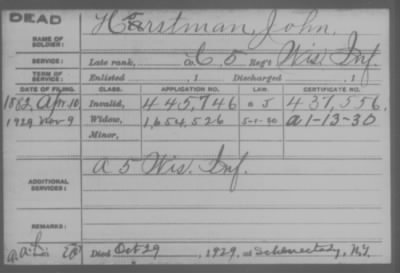 DEAD
NAME OF SOLDIER: Horstman, John.
SERVICE: Late rank, Co. C, 5 Reg't Wis. Inf.
TERM OF SERVICE: Enlisted , 1 Discharged , 1
DATE OF FILING. CLASS. APPLICATION NO. LAW. CERTIFICATE NO.
1882, Apr. 10, Invalid, 445,746 437,556.
1929 Nov-9 Widow, 1,654,526 5-1-20 a1-13-30
Minor,
ADDITIONAL SERVICES: A 5 Wis. Inf.
REMARKS:
Died Oct 29, 1929, at Schenectady, N.Y.